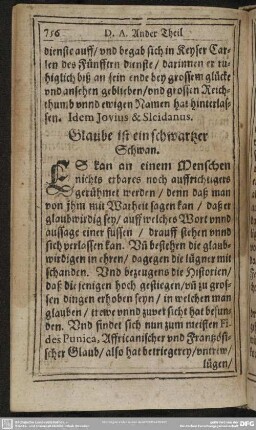 756 D. A. Ander Theil
dienste auff / vnd begab sich in Keyser Car-
len des Fünfften dienste / darinnen er ru-
higlich biß an sein ende bey grossem glücke
vnd ansehen geblieben / vnd grossen Reich-
thumb vnnd ewigen Namen hat hinterlas-
sen. Idem Jovius & Sleidanus.
Glaube ist ein schwartzer
Schwan.
ES kan an einem Menschen
nichts erbares noch auffrichtigers
gerühmet werden / denn daß man
von jhm mit Warheit sagen kan / daß er
glaubwirdig sey / auff welches Wort vnnd
aussage einer fussen / drauff stehen vnnd
sich verlassen kan. Vñ bestehen die glaub-
wirdigen in ehren / dagegen die lügner mit
schanden. Vnd bezeugens die Historien /
daß die jenigen hoch gestiegen / vñ zu gros-
sen dingen erhoben seyn / in welchen man
glauben / trewe vnnd zuversicht hat befun-
den. Vnd findet sich nun zum meisten Fi-
des Punica, Affricanischer vnd Frantzösi-
scher Glaub / also hat betriegerey / vntrew /
lügen /
DFG